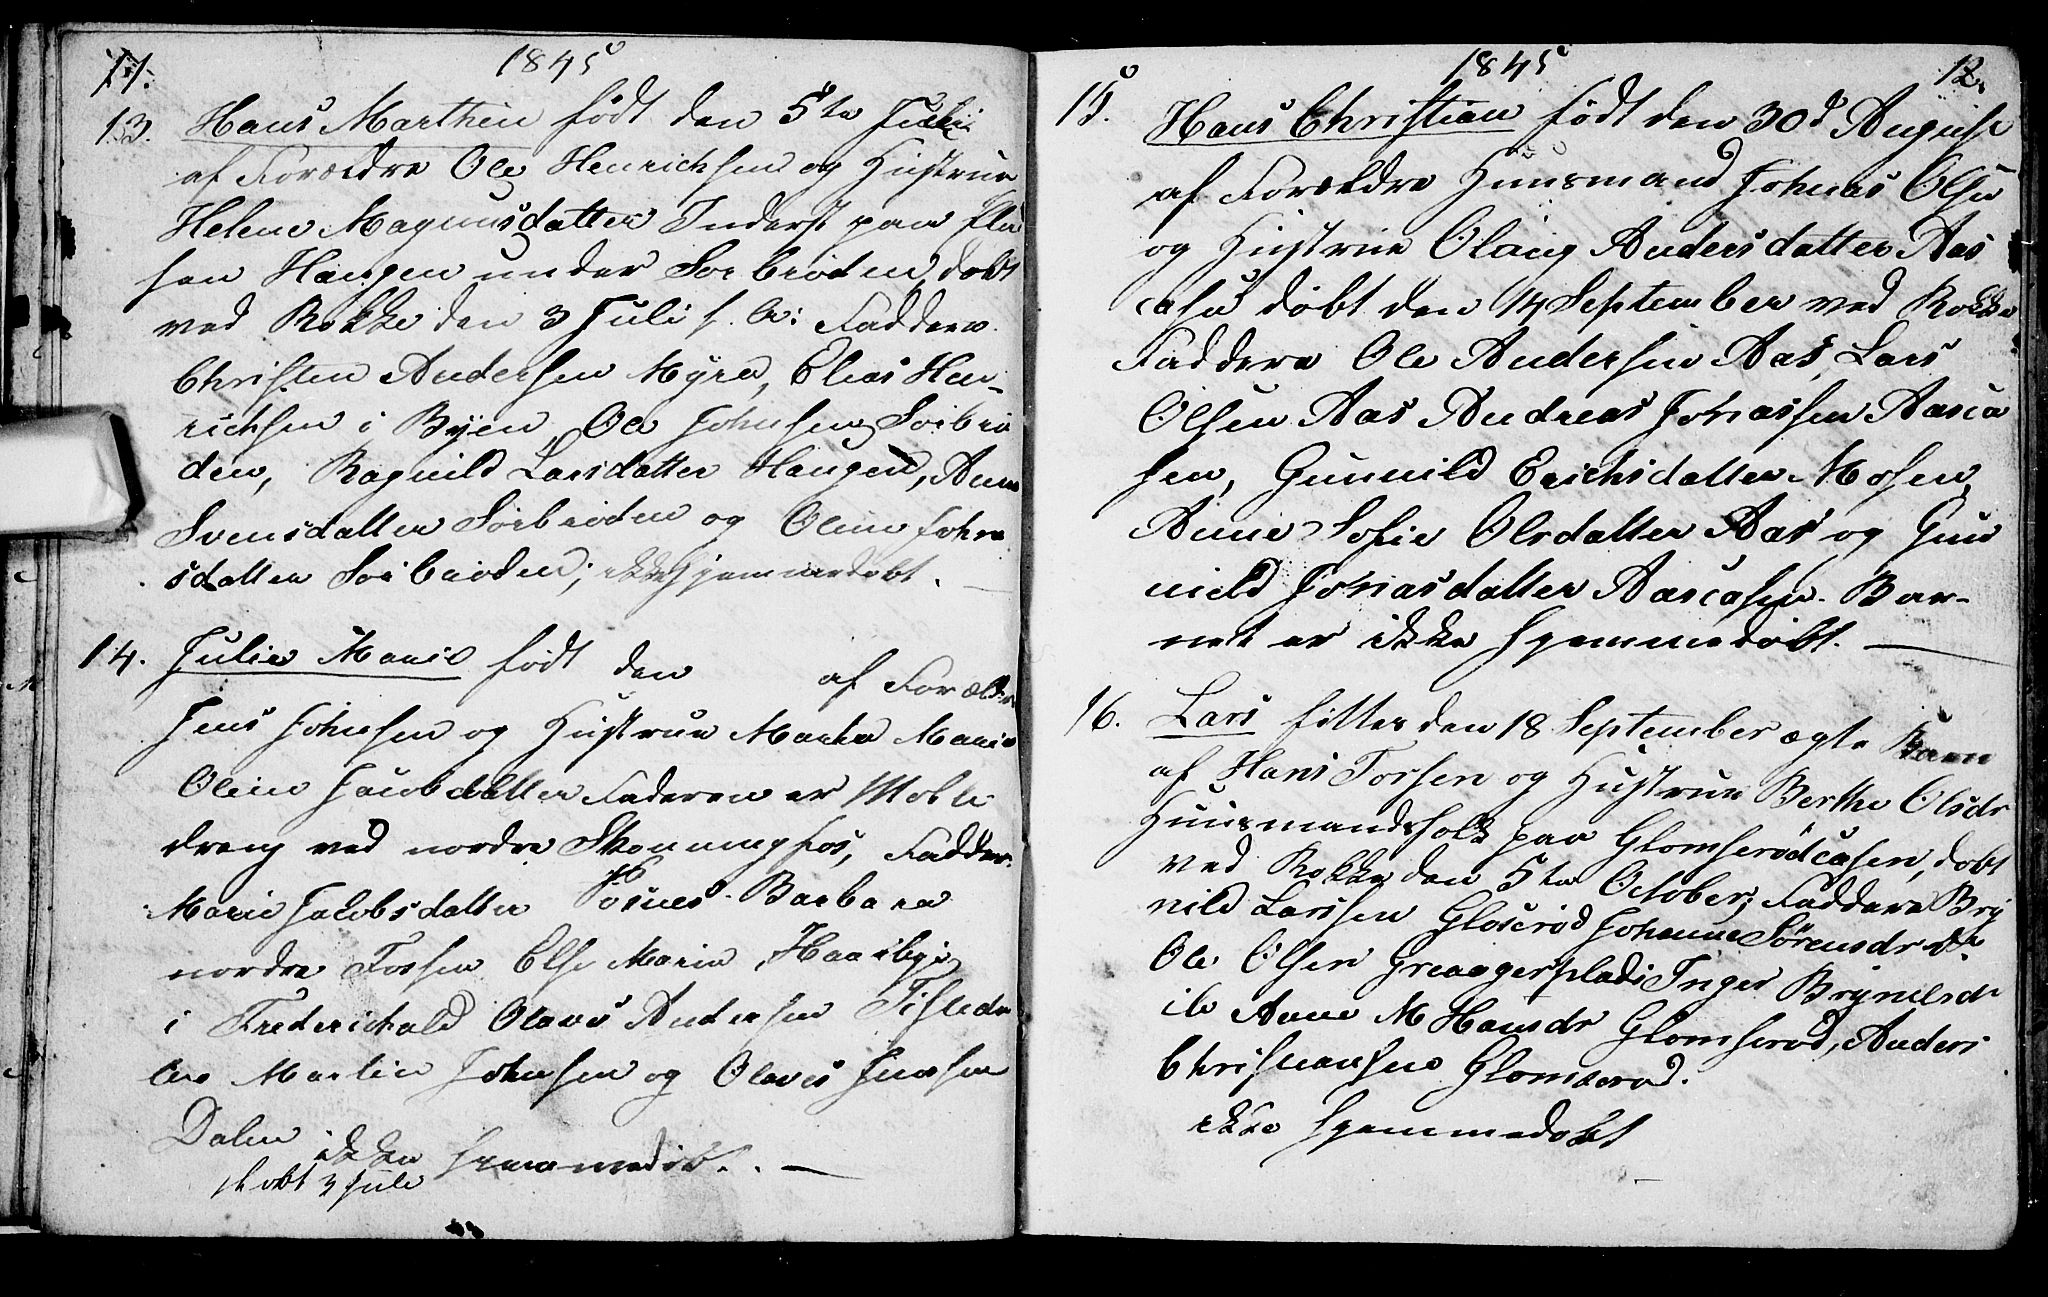 11.
1845
13. Hans Marthin født den 5te Juli
af Forældre Ole Henrichsen og Hustrue
Helene Magnusdatter Inderst paa Pla
sen Haugen under Sorbrøden, døbt
ved Rokke den 3 Juli s. a: Faddere
Christen Andersen Myre, Elias Hen-
richsen i Byen, Ole Johnsen Sorbrø
den, Ragnild Larsdatter Haugen, Anne
Svensdatter Sorbrøden og Oline Johne
sdatter Sorbrøden; ikke hjemmedøbt.
14. Julie Marie født den af Forældre
Jens Johnsen og Hustrue Marthe Marie
Oline Jacobsdatter Faderen er Mølle
dreng ved nordre Skonningfos, Fadder.
Marie Jacobsdatter Barbara
nordre Fossen Else Marie
i Frederichald Olaves Andersen Tisteda
len Martin Johnsen og Olaves Jensen
Dalen ikke hjemmedøbt.
døbt 3 Juli
1845
12.
15. Hans Christian født den 30d August
af Forældre Huusmand Johnas Olsen
og Hustrue Olaug Andersdatter Aas
casen døbt den 14 September ved Rokke
Faddere Ole Andersen Aas, Lars
Olsen Aas Andreas Jonassen Aasca
sen, Gunnild Erichsdatter Mosen,
Anne Sofie Olsdatter Aas og Gun
nild Jonasdatter Aascasen. Bar-
net er ikke hjemmedøbt.
16. Lars fødtes den 18 September ægte Barn
af Hans Torsen og Hustrue Berthe Olsdr
Huusmandsfolk paa Glomserødcasen, døbt
ved Rokke den 5te October, Faddere Bry
nild Larsen Gloserød Johanne Sørensdr
Ole Olsen Inger Brynilsd
ib Anne M Hansdr Glomserød, Anders
Christiansen Glomserød.
ikke hjemmedøbt